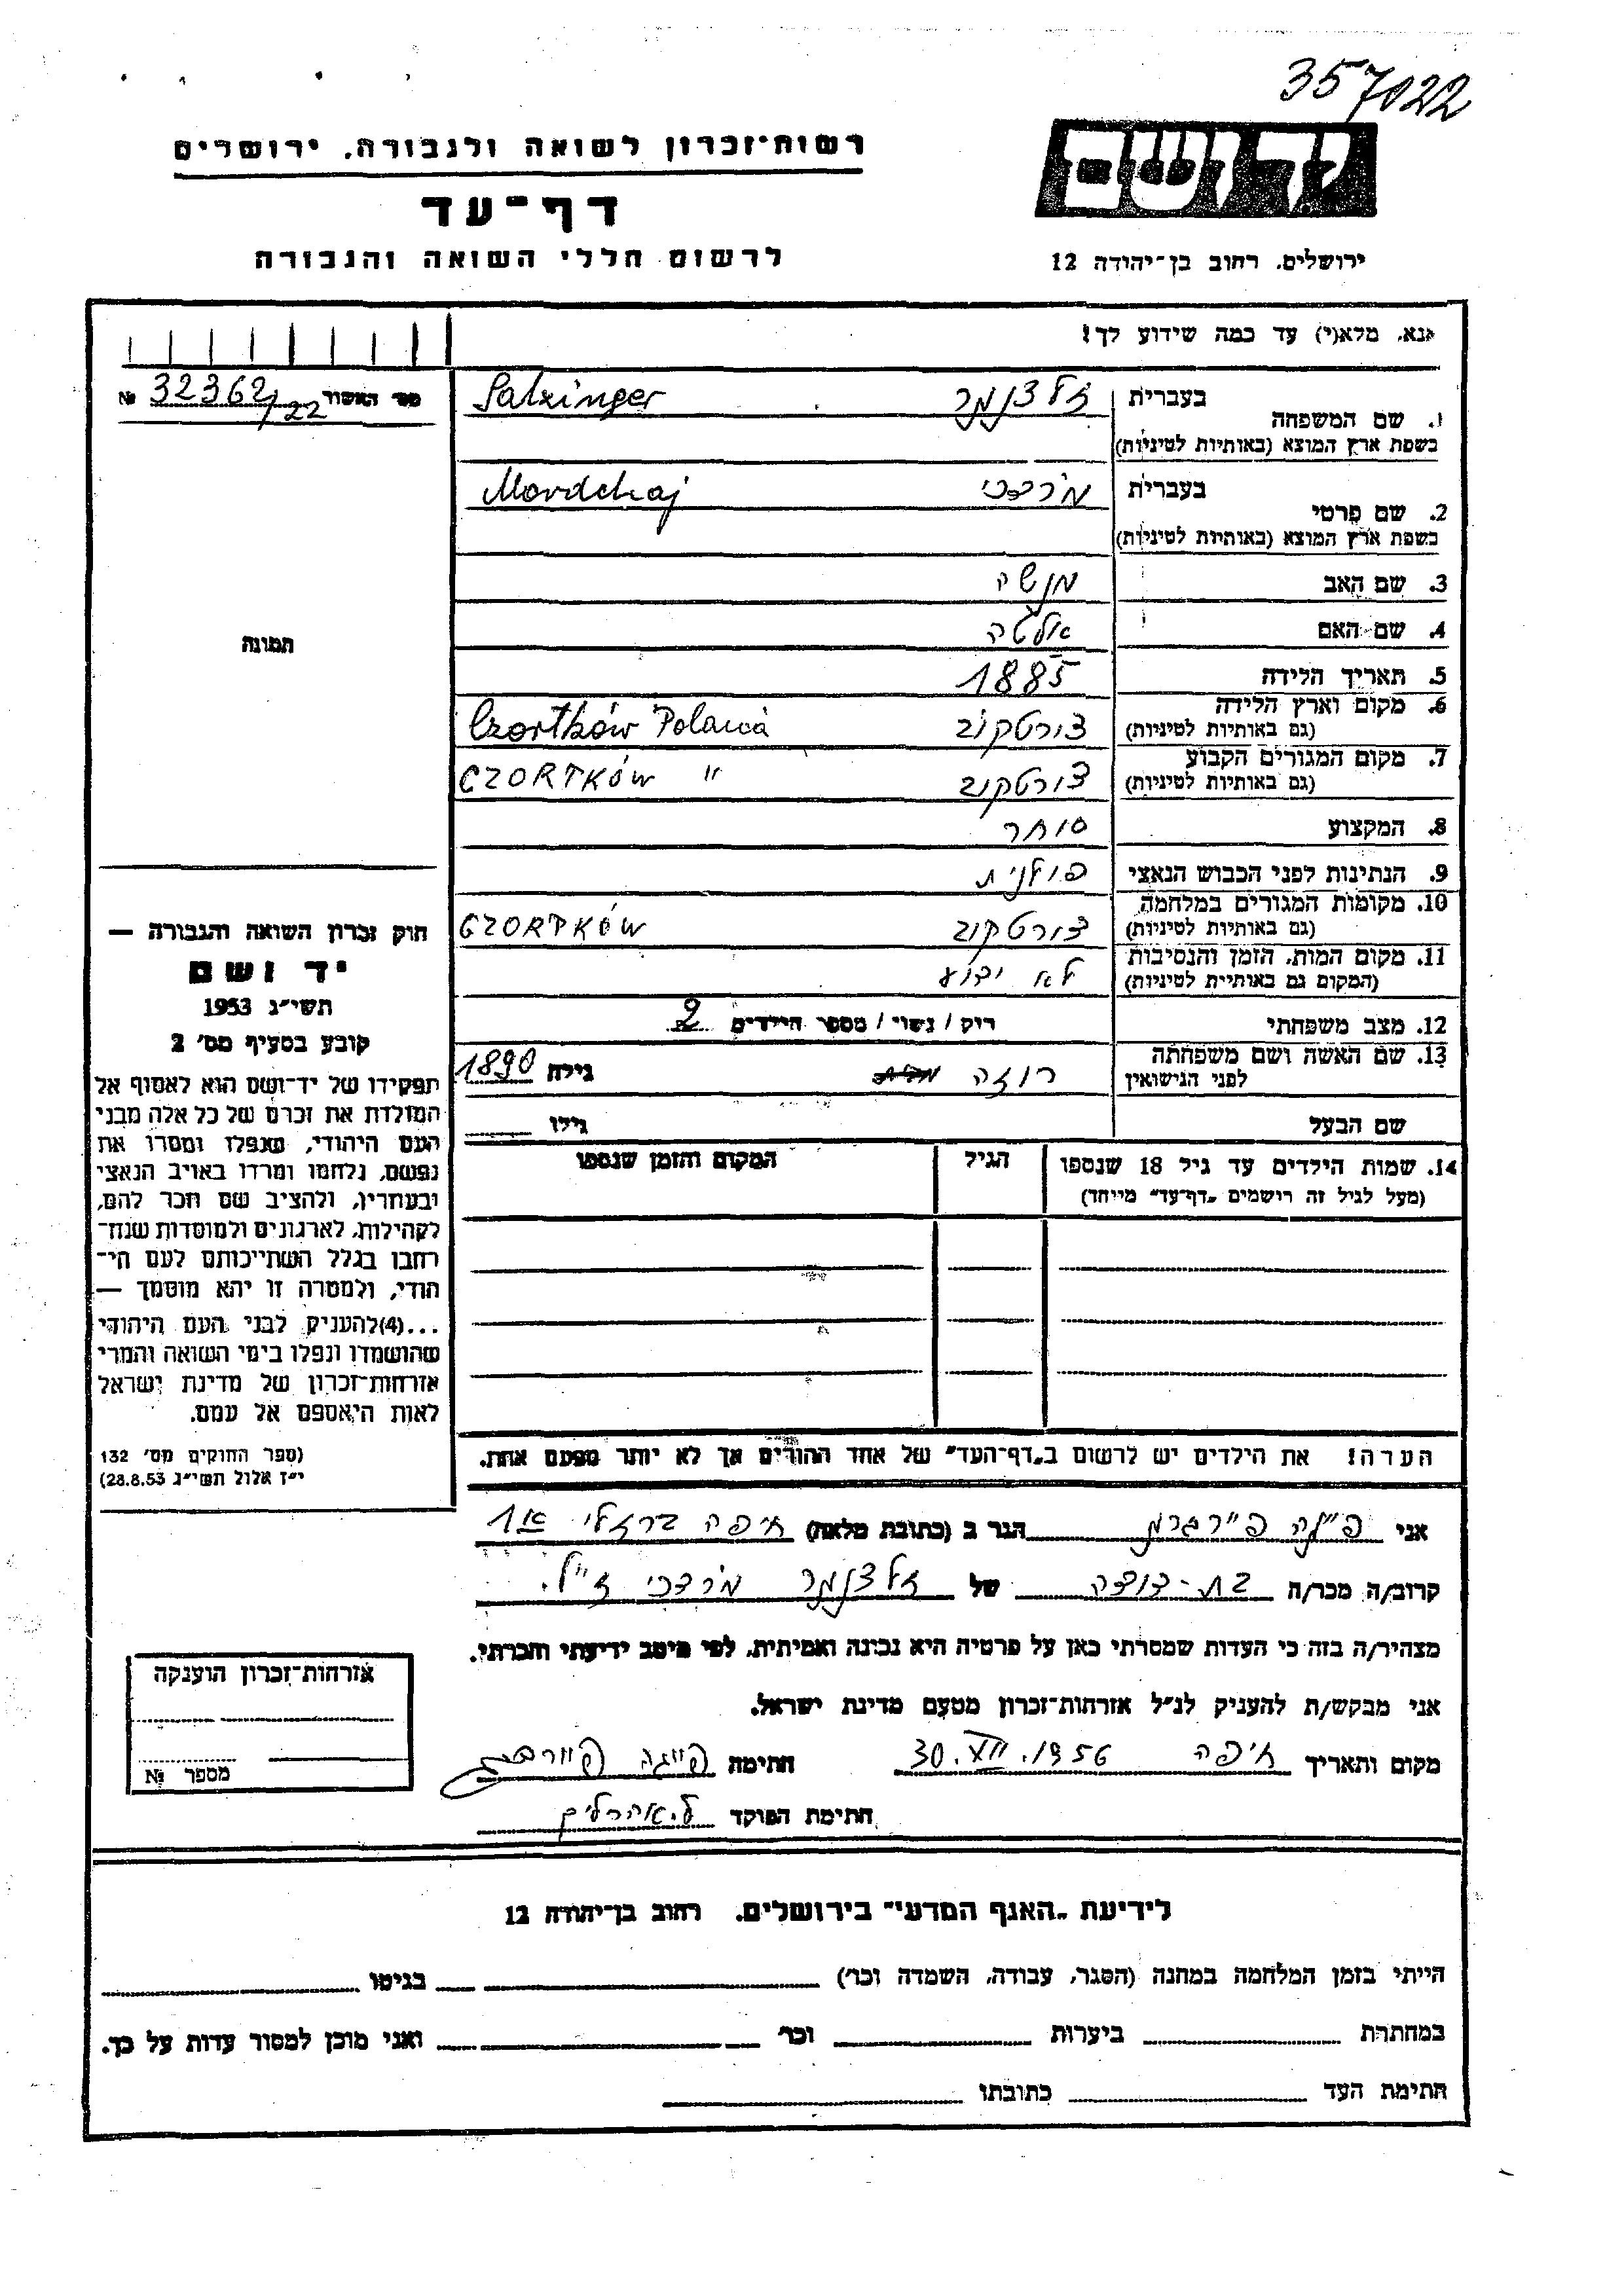 357022
רשות־זכרון לשואה ולגבורה, ירושלים
דף־עד
לרשום חללי השואה והגבורה
יד ושם
ירושלים, רחוב בן־יהודה 12
נא, מלא(י) עד כמה שידוע לך!
מס׳ האשור 32362/22 №
1. שם המשפחה בעברית
Salzinger
(בשפת ארץ המוצא (באותיות לטיניות
2. שם פרטי בעברית מרדכי Mordchaj
בשפת ארץ המוצא (באותיות לטיניות)
3. שם האב מנשה
4. שם האם אלטה
תמונה
5. תאריך הלידה 1885
6. מקום וארץ הלידה צורטקוב Czortków
(גם באותיות לטיניות)
7. מקום המגורים הקבוע צורטקוב CZORTKÓW "
(גם באותיות לטיניות)
8. המקצוע סוחר
9. הנתינות לפני הכבוש הנאצי פולנית
10. מקומות המגורים במלחמה צורטקוב CZORTKÓW
(גם באותיות לטיניות)
11. מקום המות, הזמן והנסיבות לא ידוע
(המקום גם באותיות לטיניות)
12. מצב משפחתי רוק / נשוי / מספר הילדים 2
13. שם האשה ושם משפחתה רוזה גילה 1890
לפני הנישואין
שם הבעל גילו
14. שמות הילדים עד גיל 18 שנספו הגיל המקום והזמן שנספו
(מעל לגיל זה רושמים „דף־עד״ מיוחד)
הערה! את הילדים יש לרשום ב„דף־העד״ של אחד ההורים אך לא יותר מפעם אחת.
חוק זכרון השואה והגבורה —
יד ושם
תשי״ג 1953
קובע בסעיף מס׳ 2
תפקידו של יד־ושם הוא לאסוף אל
המולדת את זכרם של כל אלה מבני
העם היהודי, שנפלו ומסרו את
נפשם, נלחמו ומרדו באויב הנאצי
ובעוזריו, ולהציב שם וזכר להם,
לקהילות, לארגונים ולמוסדות שנח־
רבו בגלל השתייכותם לעם הי־
הודי, ולמטרה זו יהא מוסמך —
...(4) להעניק לבני העם היהודי
שהושמדו ונפלו בימי השואה והמרי
אזרחות־זכרון של מדינת ישראל
לאות היאספם אל עמם.
(ספר החוקים מס׳ 132
י״ז אלול תשי״ג 28.8.53)
אני הגר ב (כתובת מלאה) חיפה ברזלי 1א
קרוב/ה מכר/ה בת־דודה של מרדכי ז״ל.
מצהיר/ה בזה כי העדות שמסרתי כאן על פרטיה היא נכונה ואמיתית, לפי מיטב ידיעתי והכרתי.
אני מבקש/ת להעניק לנ״ל אזרחות־זכרון מטעם מדינת ישראל.
מקום ותאריך חיפה 30.XII.1956 חתימה
חתימת הפוקד
אזרחות־זכרון הוענקה
מספר №
לידיעת „האגף המדעי״ בירושלים, רחוב בן־יהודה 12
הייתי בזמן המלחמה במחנה (הסגר, עבודה, השמדה וכו׳) בגיטו
במחתרת ביערות וכו׳ ואני מוכן למסור עדות על כך.
חתימת העד כתובתו